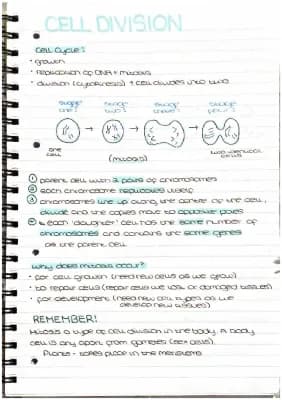 CELL DIVISION
Cell Cycle:
· growth
· replication of DNA + mitosis
· division (cytokinesis) + cell divides into two
stage one: stage two: stage three: stage four:
one cell
two identical cells
(mitosis)
① parent cell with 2 pairs of chromosomes
② each chromosome replicates itself
③ chromosomes line up along the centre of the cell,
divide and the copies move to opposite poles
④ each 'daughter' cell has the same number of
chromosomes and contains the same genes
as the parent cell
Why does mitosis occur?
· for cell growth (need new cells as we grow)
· to repair cells (repair cells we lose or damaged tissues)
· for development (need new cell types as we
develop new tissues)
REMEMBER!
Mitosis a type of cell division in the body. A body
cell is any apart from gametes (sex cells).
Plants - takes place in the meristems